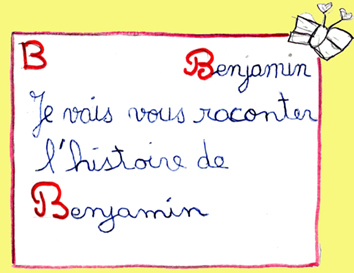 B Benjamin
Je vais vous raconter
l'histoire de
Benjamin